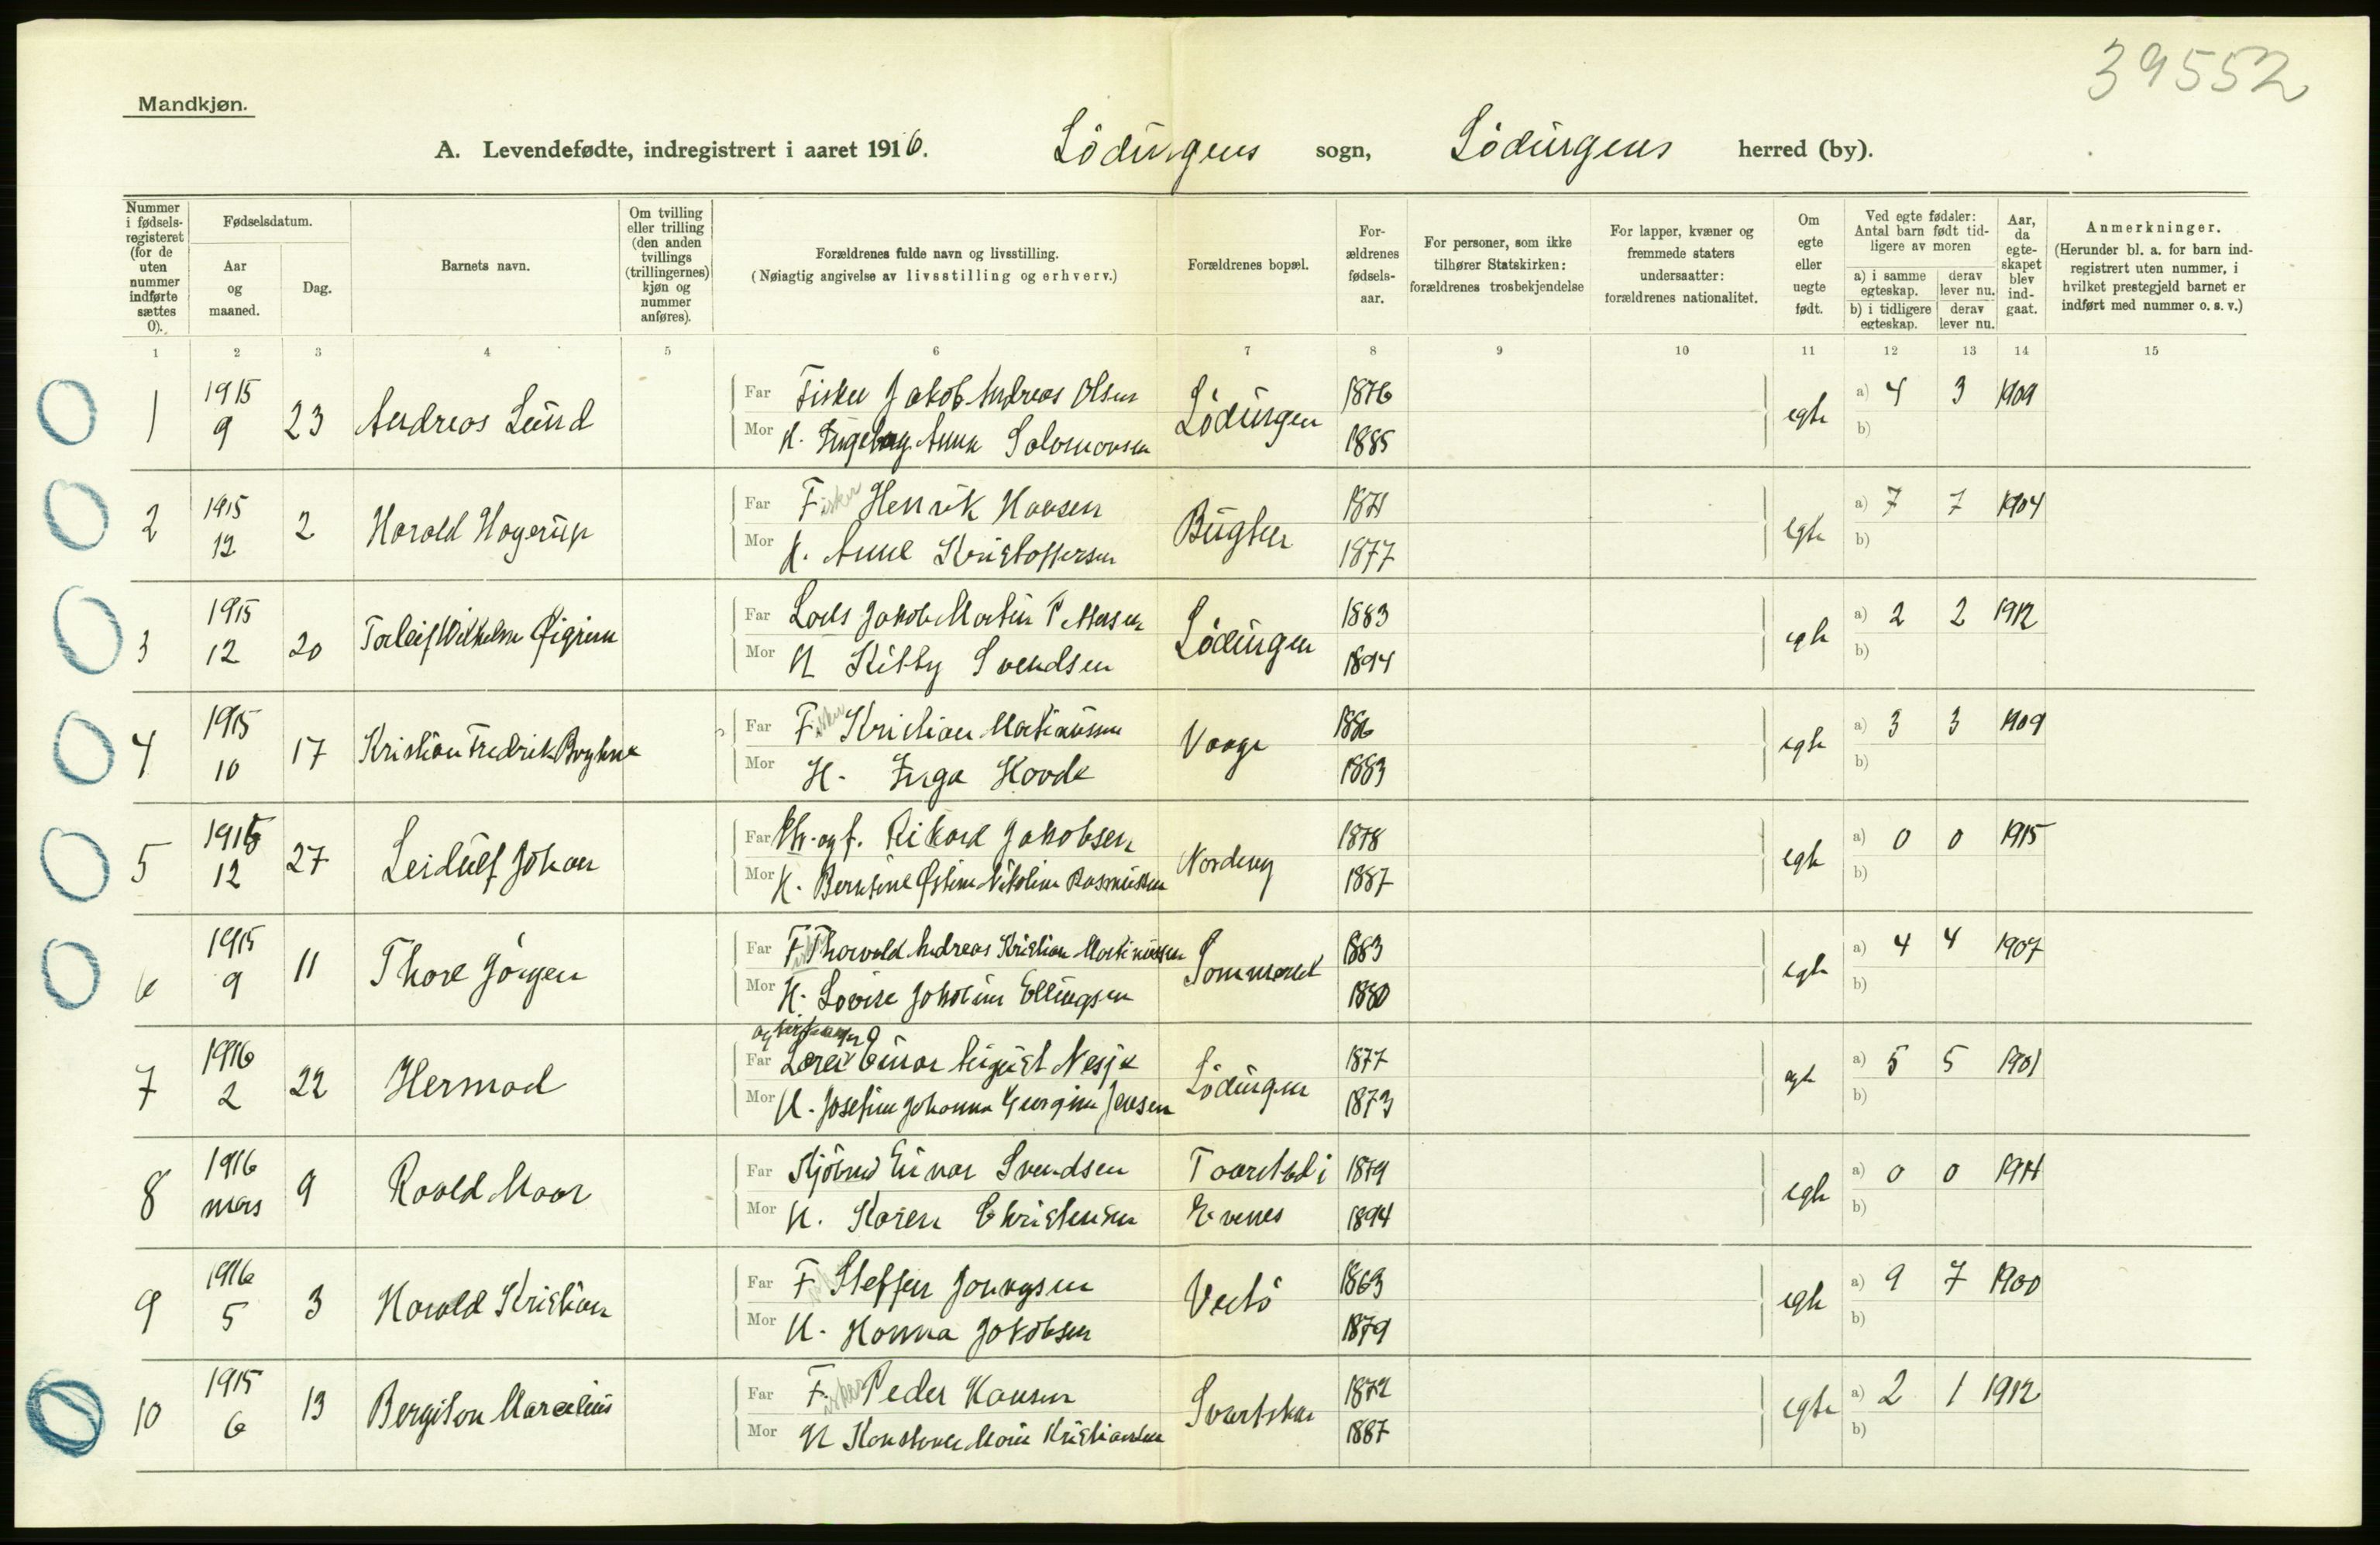 39552
Mandkjøn.
A. Levendefødte, indregistrert i aaret 1916. Lödingens sogn, Lödingens herred (by).
Nummer i fødsels-registeret (for de uten nummer indførte sættes 0).
Fødselsdatum.
Aar og maaned.
Dag.
Barnets navn.
Om tvilling eller trilling (den anden tvillings (trillingernes) kjøn og nummer anføres).
Forældrenes fulde navn og livsstilling.
(Nøiagtig angivelse av livsstilling og erhverv.)
Forældrenes bopæl.
For-ældrenes fødsels-aar.
For personer, som ikke tilhører Statskirken: forældrenes trosbekjendelse
For lapper, kvæner og fremmede staters undersaatter: forældrenes nationalitet.
Om egte eller uegte født.
Ved egte fødsler: Antal barn født tid-ligere av moren
a) i samme egteskap.
derav lever nu.
b) i tidligere egteskap.
derav lever nu.
Aar, da egte-skapet blev ind-gaat.
Anmerkninger.
(Herunder bl. a. for barn ind-registrert uten nummer, i hvilket prestegjeld barnet er indført med nummer o. s. v.)
1 2 3 4 5 6 7 8 9 10 11 12 13 14 15
1 1915 9 23 Andreas Lund
Far Fisker Jakob Andreas Olsen Lödingen 1876 egte a) 4 3 1909
Mor H. Ingeborg Anna Solomonsen 1885 b)
2 1915 12 2 Harald Hagerup
Far Fisker Henrik Hansen 1871 egte a) 7 7 1904
Mor H. Anne Kristoffersen 1877 b)
3 1915 12 20 Torleif Wilhelm
Far Lods Jakob Martin Pettersen Lödingen 1883 egte a) 2 2 1912
Mor H Kitty Svendsen 1894 b)
4 1915 10 17 Kristian Fredrik
Far Fisker Kristian Martinussen Vaage 1886 egte a) 3 3 1909
Mor H. Inga Hovde 1883 b)
5 1915 12 27 Leidulf Johan
Far Rikard Jakobsen 1878 egte a) 0 0 1915
Mor H. Berntine Østine Nikoline Rasmussen 1887 b)
6 1915 9 11 Thore Jörgen
Far F Thorvald Andreas Kristian Martinussen Sommerset 1883 egte a) 4 4 1907
Mor H. Lovise Jakobine Ellingsen 1880 b)
7 1916 2 22 Hermod
Far Lærer Einar August Nesje Lödingen 1877 egte a) 5 5 1901
Mor H. Josefine Johanna Georgine Jensen 1873 b)
8 1916 mars 9 Roald Maor
Far Einar Svendsen Taarstad i 1879 egte a) 0 0 1914
Mor H. Karen Christensen Evenes 1894 b)
9 1916 5 3 Harald Kristian
Far F Steffen 1863 egte a) 9 7 1900
Mor H. Hanna Jakobsen 1879 b)
10 1915 6 13 Bergiton Marcelius
Far Fisker Peder Hansen 1872 egte a) 2 1 1912
Mor H Konstance Marie Kristiansen 1887 b)